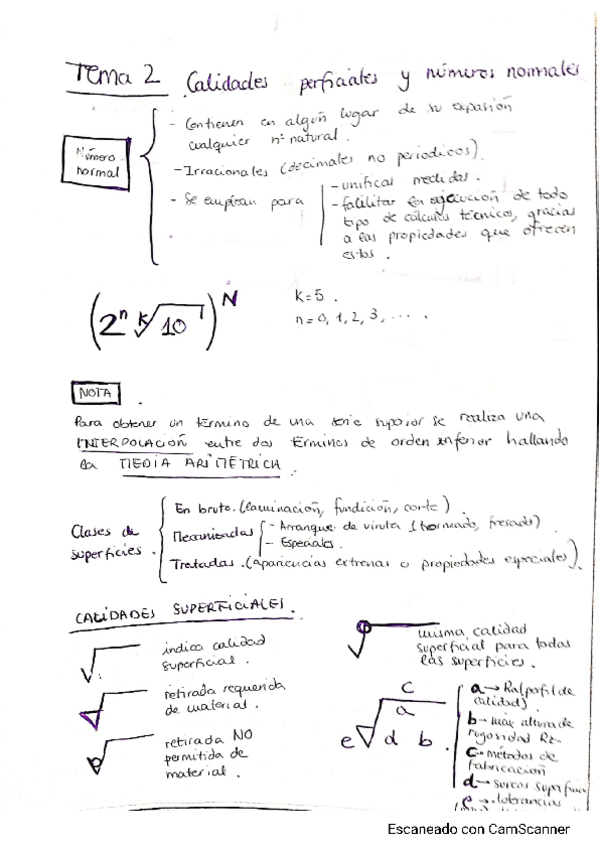 Tema 2. Calidades perficiales y números normales
Número normal
- Contienen en algún lugar de su expasión
cualquier nº natural.
- Irracionales (decimales no periodicos).
- Se emplean para
- unificar medidas.
- facilitar la ejecución de todo
tipo de cálculos técnico, gracias
a las propiedades que ofrecen
estos.
(2ⁿ ᵏ√10)ᴺ
k=5.
n=0, 1, 2, 3, ....
NOTA
Para obtener un término de una serie superior se realiza una
INTERPOLACIÓN entre dos términos de orden inferior hallando
la MEDIA ARITMÉTRICA.
Clases de
superficies.
En bruto. (laminación, fundición, corte).
Mecanizadas
- Arranque de viruta (torneado, fresado)
- Especiales.
Tratadas. (apariencias extrenas o propiedades especiales).
CALIDADES SUPERFICIALES.
indica calidad
superficial.
retirada requerida
de material.
retirada NO
permitida de
material.
misma calidad
superficial para todas
las superficies.
c
a
e d b
a → Ra (perfil de
calidad)
b → máx altura de
rugosidad Rz.
c → métodos de
fabricación
d → surcos
e → tolerancias
Escaneado con CamScanner